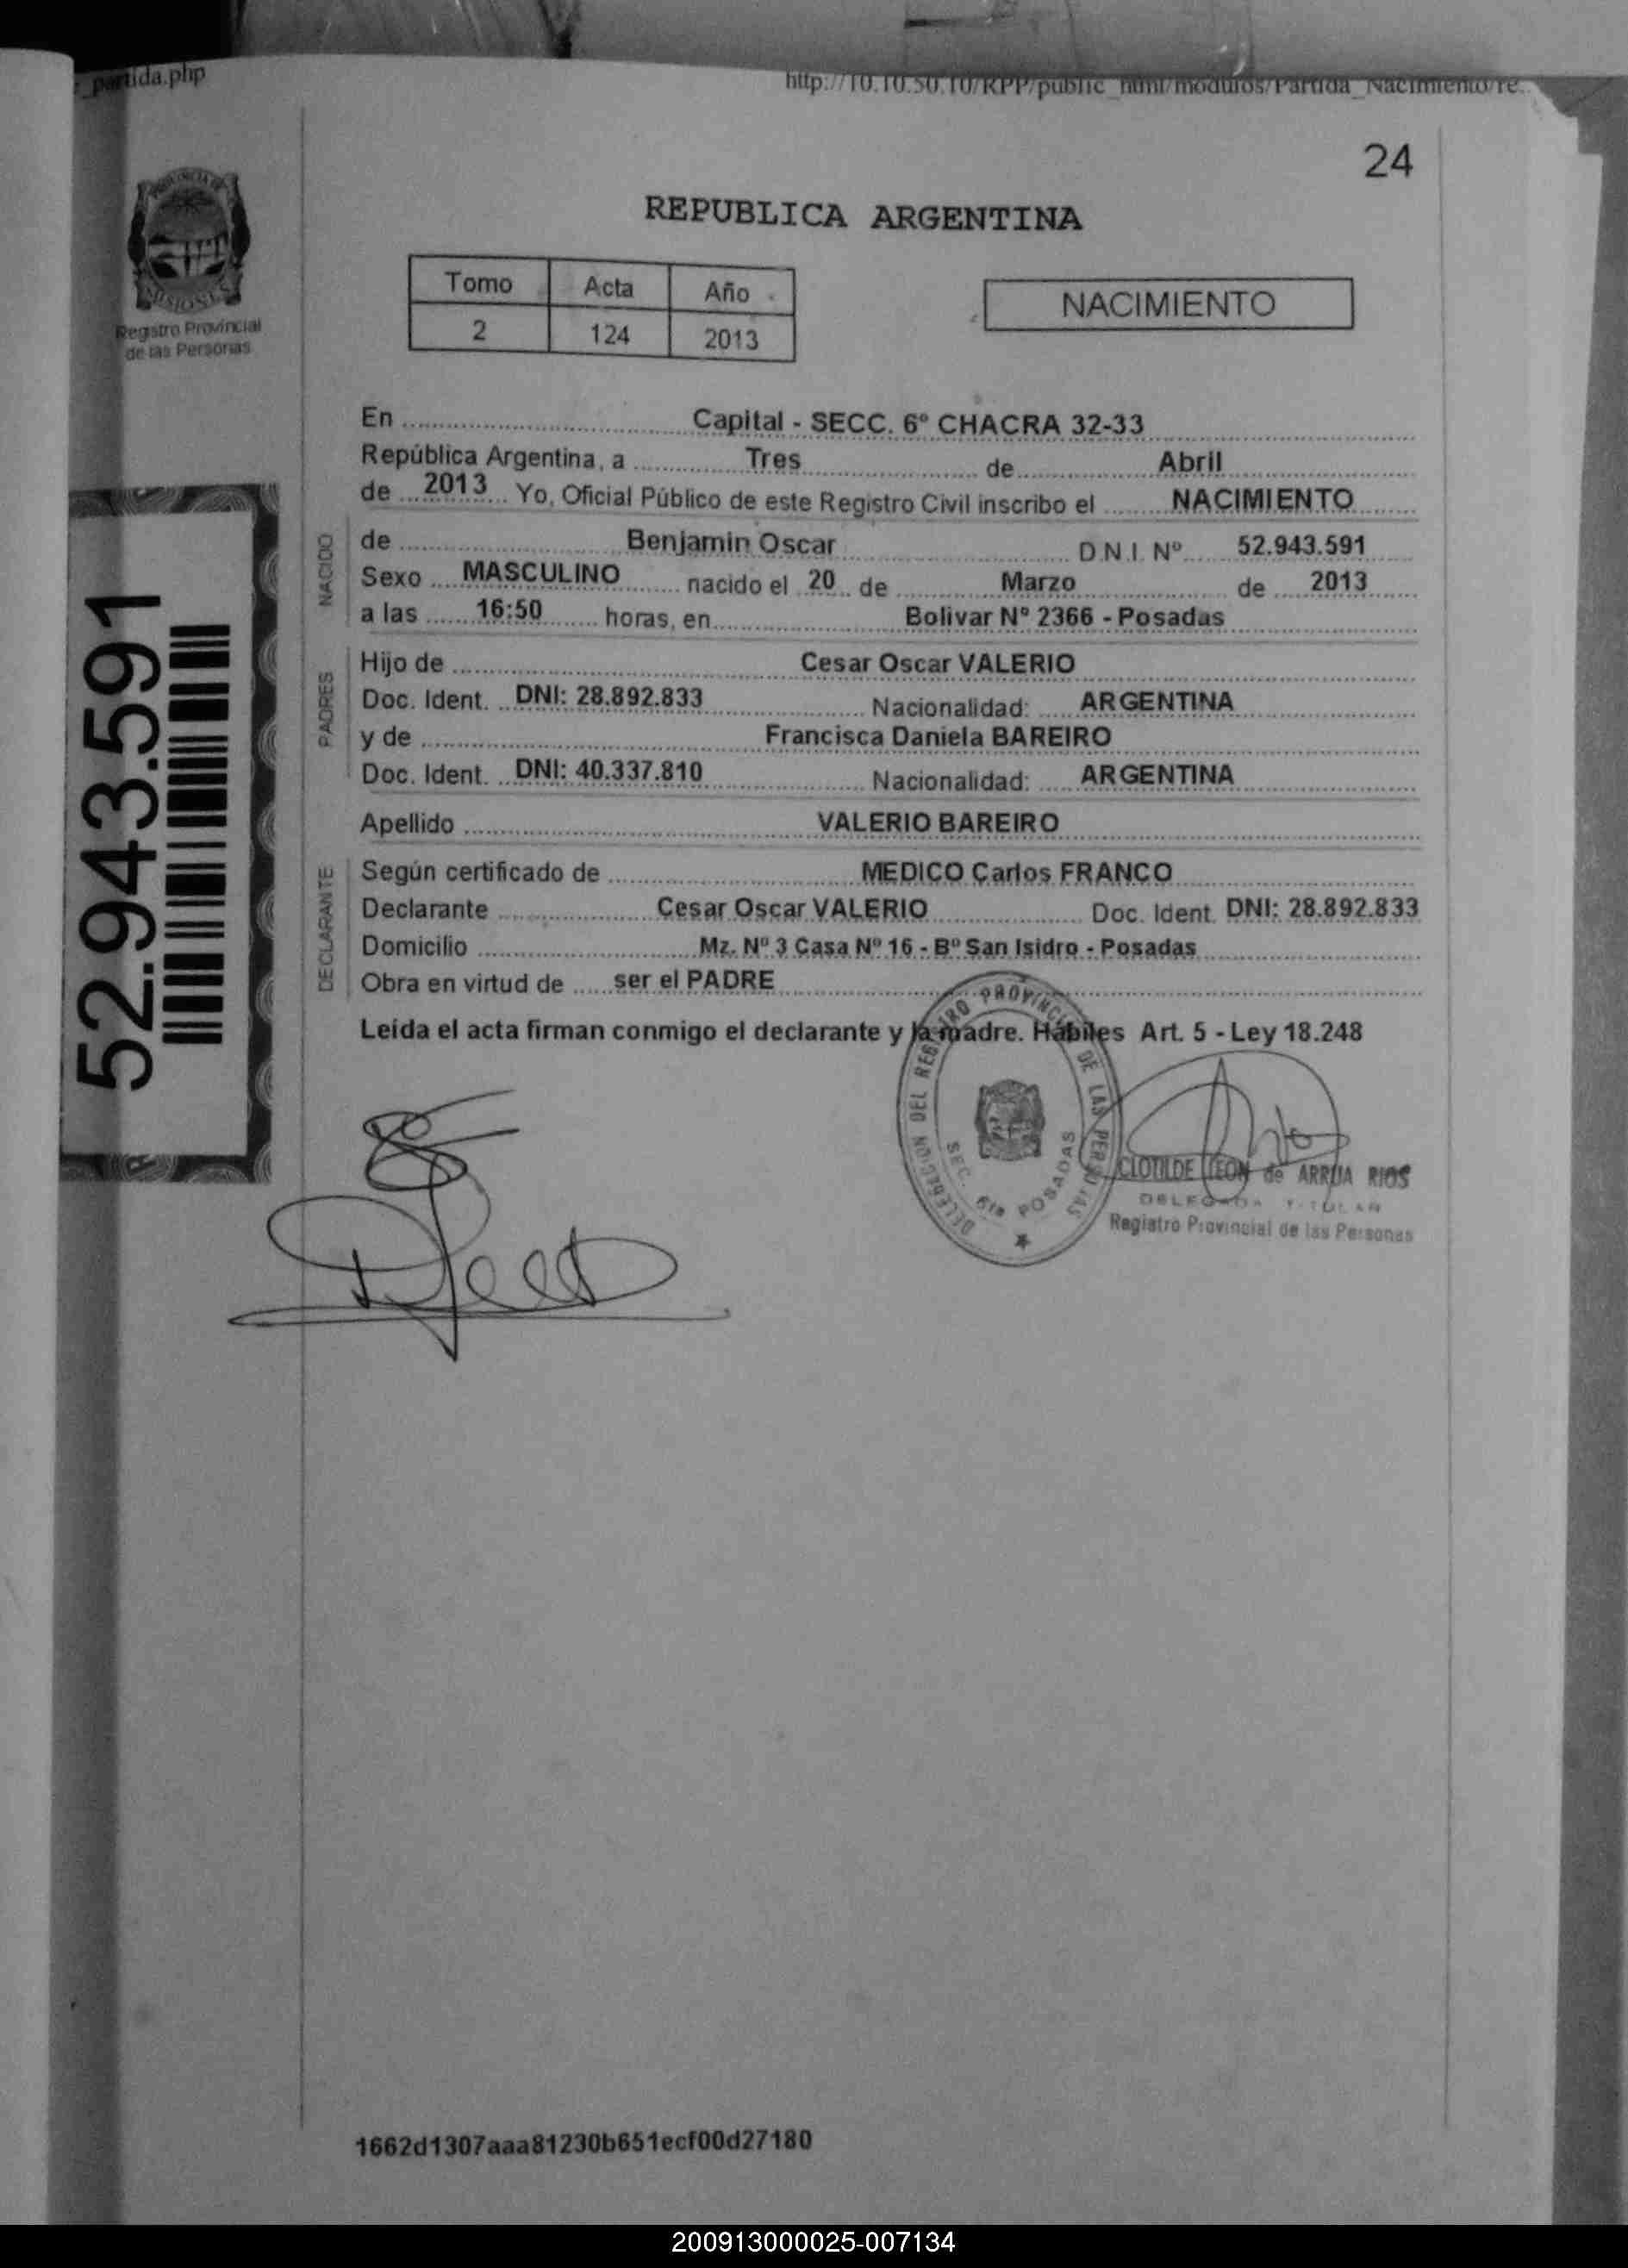 _partida.php
http://10.10.50.10/RPP/public_html/modulos/Partida_Nacimiento/re...
24
PROVINCIA DE
MISIONES
Registro Provincial
de las Personas
REPUBLICA ARGENTINA
Tomo Acta Año
2 124 2013
NACIMIENTO
En Capital - SECC. 6º CHACRA 32-33
República Argentina, a Tres de Abril
de 2013 Yo, Oficial Público de este Registro Civil inscribo el NACIMIENTO
NACIDO
de Benjamin Oscar D.N.I. Nº 52.943.591
Sexo MASCULINO nacido el 20 de Marzo de 2013
a las 16:50 horas, en Bolivar Nº 2366 - Posadas
PADRES
Hijo de Cesar Oscar VALERIO
Doc. Ident. DNI: 28.892.833 Nacionalidad: ARGENTINA
y de Francisca Daniela BAREIRO
Doc. Ident. DNI: 40.337.810 Nacionalidad: ARGENTINA
Apellido VALERIO BAREIRO
DECLARANTE
Según certificado de MEDICO Carlos FRANCO
Declarante Cesar Oscar VALERIO Doc. Ident. DNI: 28.892.833
Domicilio Mz. Nº 3 Casa Nº 16 - Bº San Isidro - Posadas
Obra en virtud de ser el PADRE
Leída el acta firman conmigo el declarante y la madre. Hábiles Art. 5 - Ley 18.248
52.943.591
DELEGACION DEL REGISTRO PROVINCIAL DE LAS PERSONAS
SEC. 6ta POSADAS
CLOTILDE LEON de ARRUA RIOS
DELEGADA TITULAR
Registro Provincial de las Personas
1662d1307aaa81230b651ecf00d27180
200913000025-007134